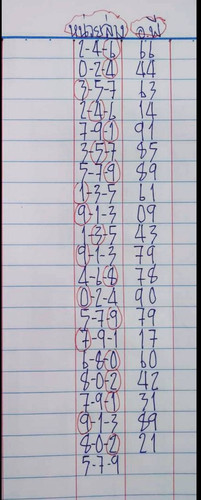 หน่วยล่าง อ.พี
2-4-6 66
0-2-4 44
3-5-7 63
2-4-6 14
7-9-1 91
3-5-7 85
5-7-9 89
1-3-5 61
9-1-3 09
1-3-5 43
9-1-3 79
4-6-8 78
0-2-4 90
5-7-9 79
7-9-1 17
6-8-0 60
8-0-2 42
7-9-1 31
9-1-3 89
8-0-2 21
5-7-9